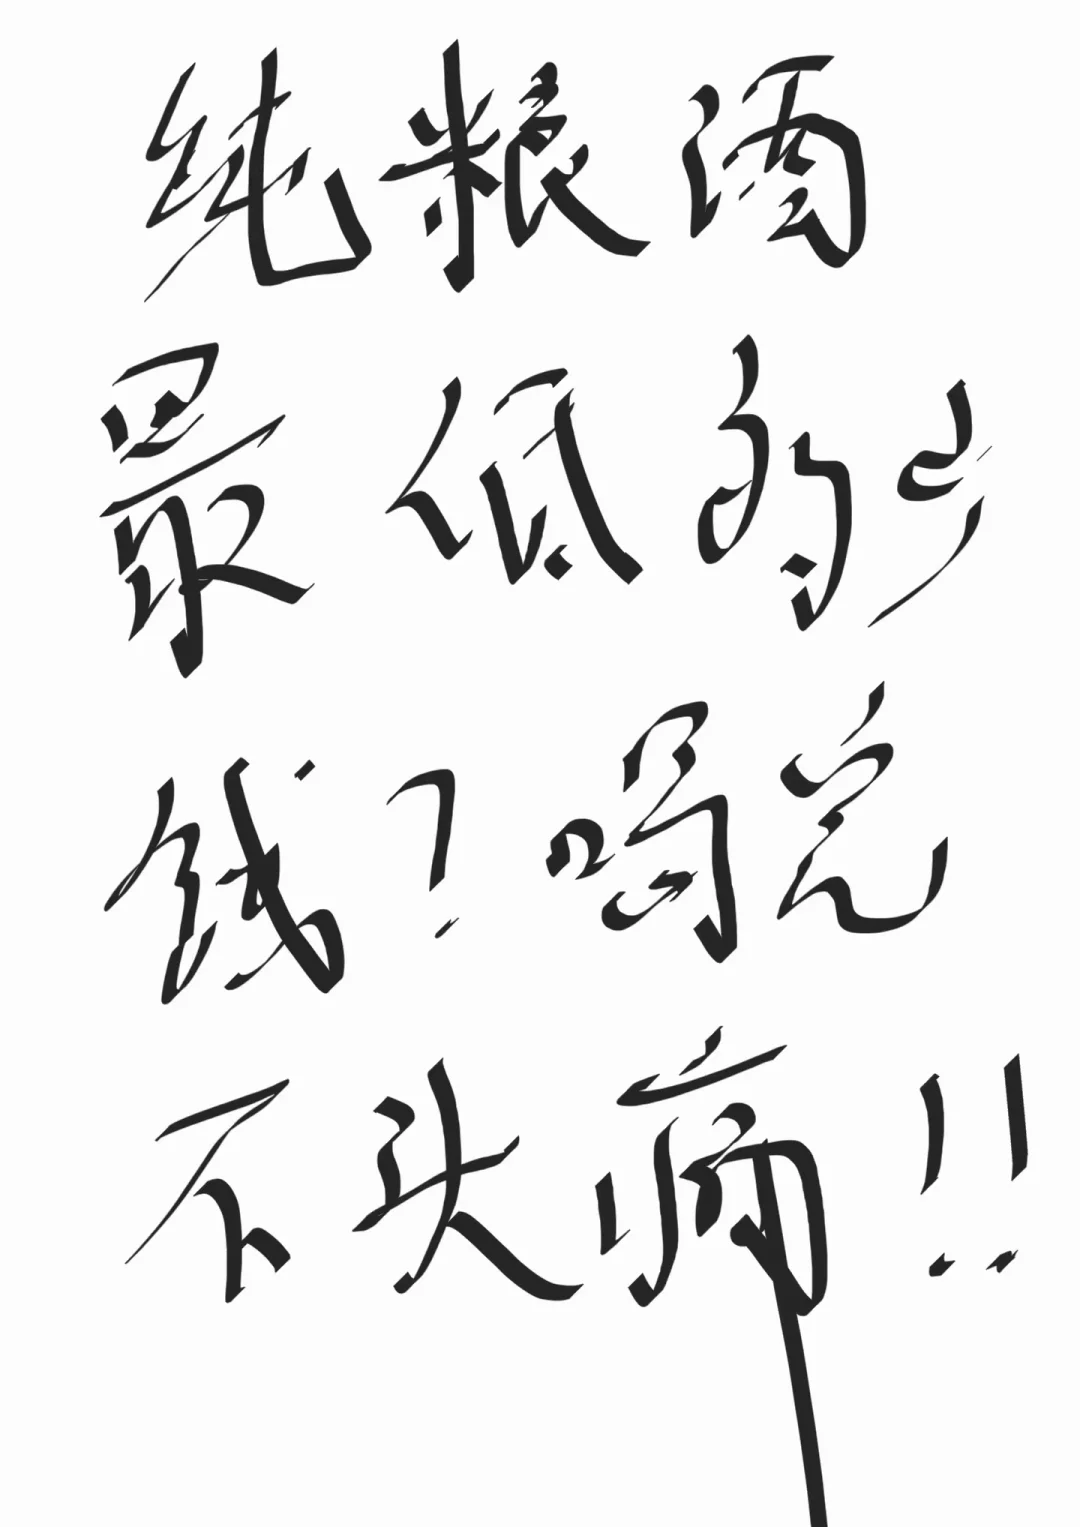 纯粮酒
最低的多少
钱？喝完
不头痛！！